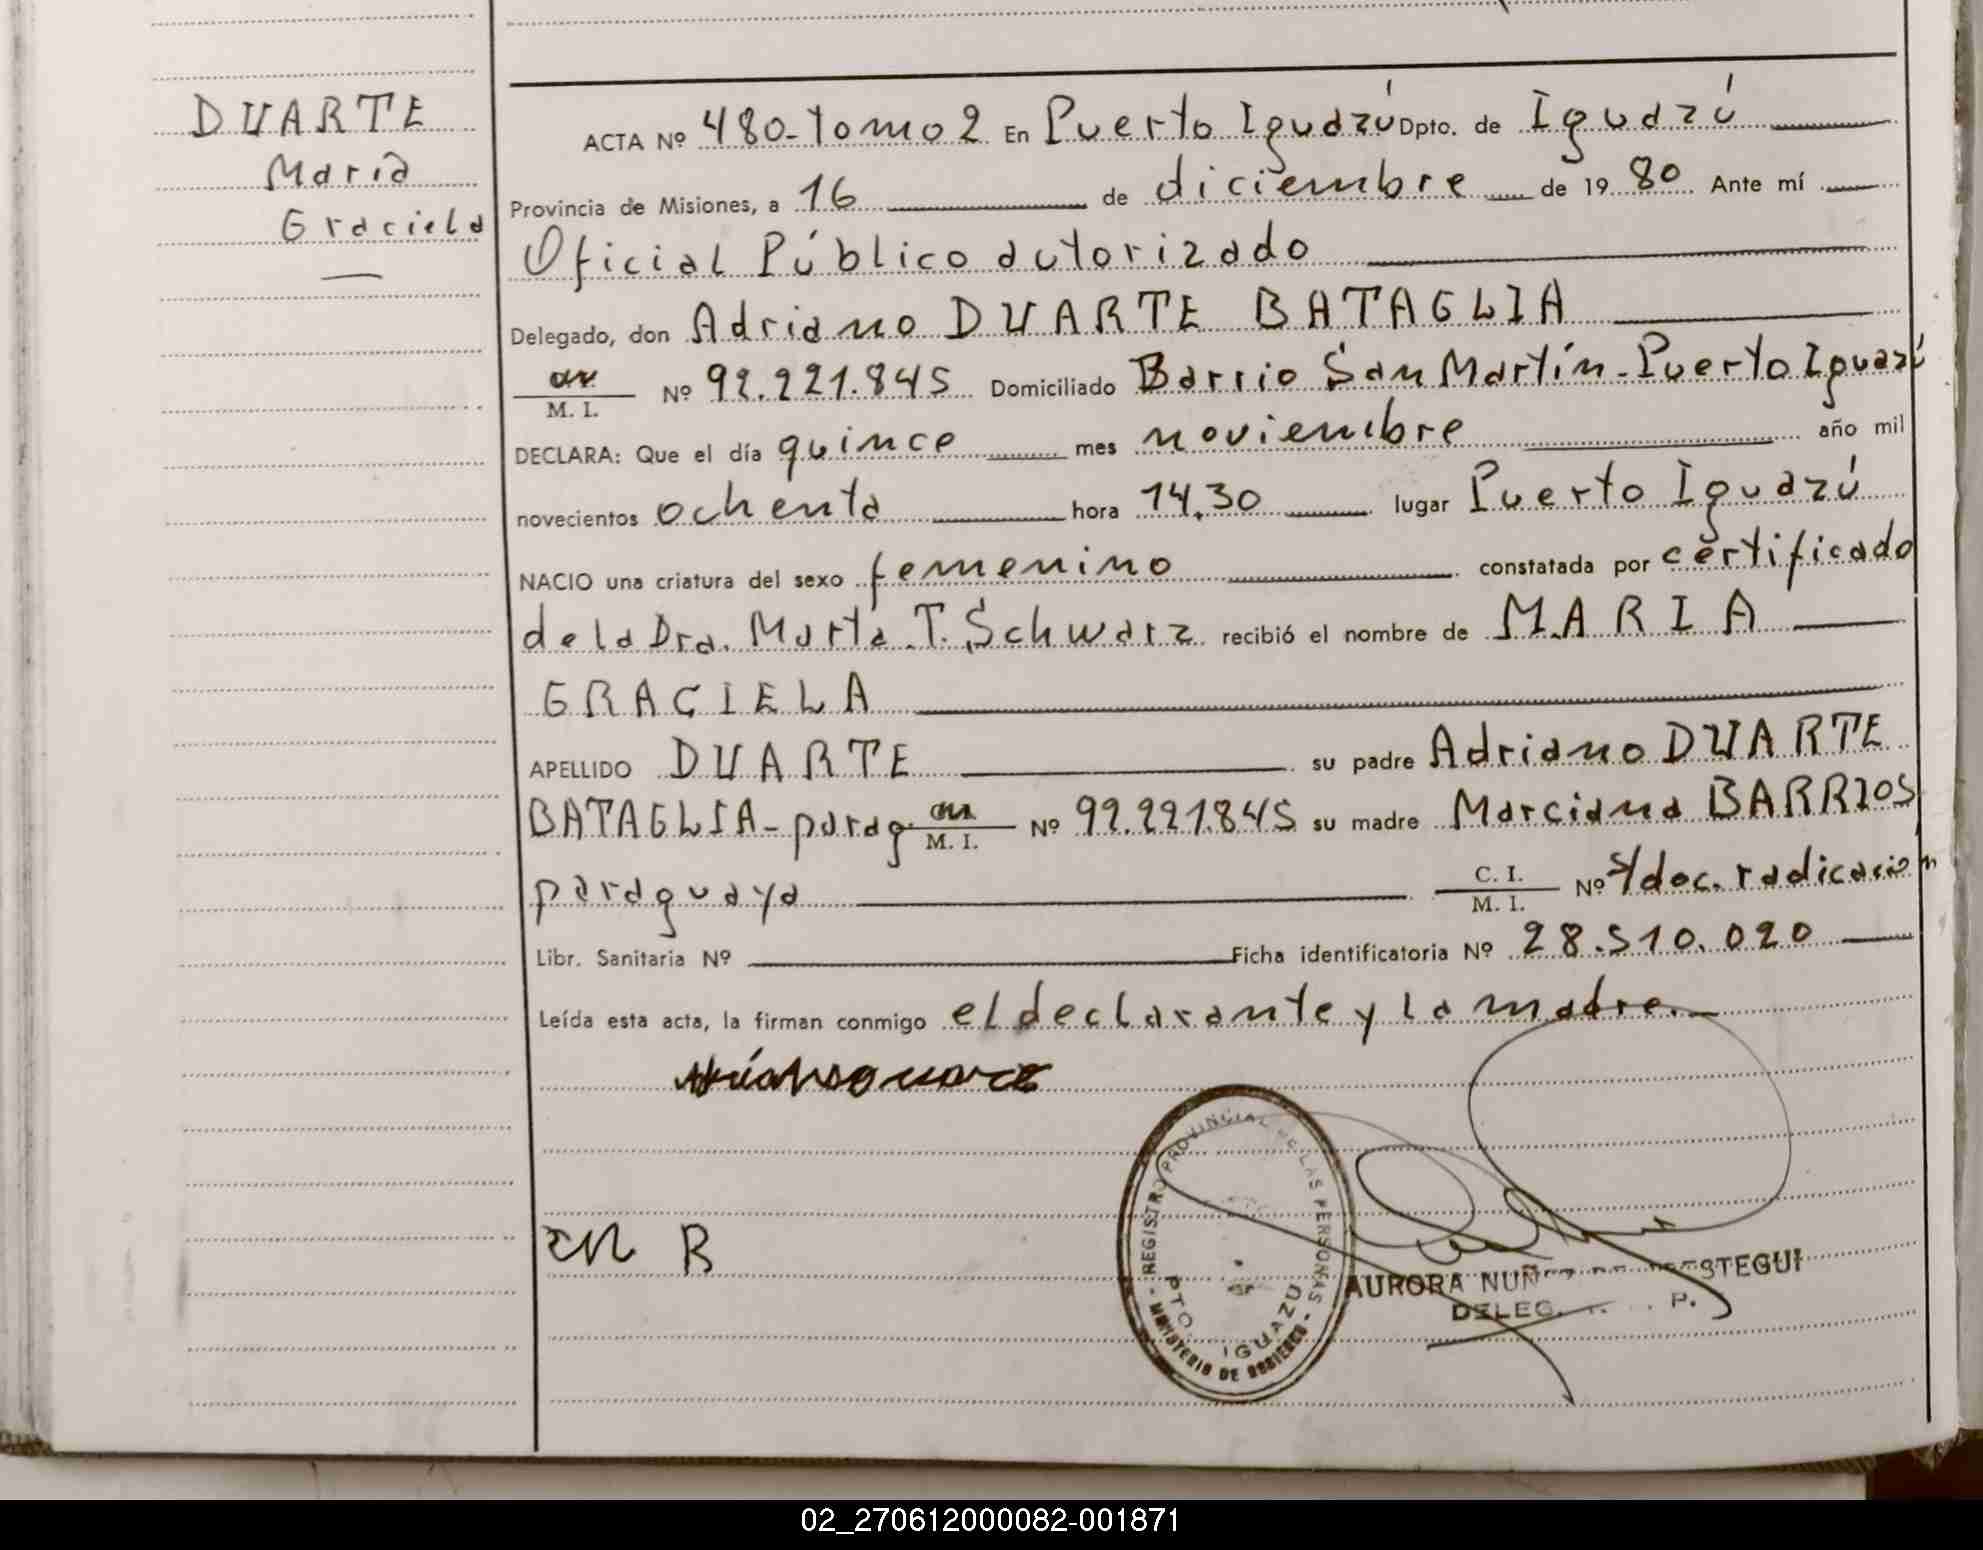 DUARTE
María
Graciela
ACTA Nº 480-Tomo 2 En Puerto Iguazú Dpto. de Iguazú
Provincia de Misiones, a 16 de diciembre de 1980 Ante mí
Oficial Público autorizado
Delegado, don Adriano DUARTE BATAGLIA
M. I. Nº 92.221.845 Domiciliado Barrio San Martín-Puerto Iguazú
DECLARA: Que el día quince mes noviembre año mil
novecientos ochenta hora 14.30 lugar Puerto Iguazú
NACIO una criatura del sexo femenino constatada por certificado
de la Dra. Marta T. Schwarz recibió el nombre de MARIA
GRACIELA
APELLIDO DUARTE su padre Adriano DUARTE
BATAGLIA-parag. M. I. Nº 92.221.845 su madre Marciana BARRIOS
paraguaya C. I. M. I. Nº s/doc. radicación
Libr. Sanitaria Nº Ficha identificatoria Nº 28.510.020
Leída esta acta, la firman conmigo el declarante y la madre.
REGISTRO PROVINCIAL DE LAS PERSONAS
PTO. IGUAZU
MINISTERIO DE GOBIERNO
M B
AURORA NUÑ STEGUI
DELEG. P.
02_270612000082-001871